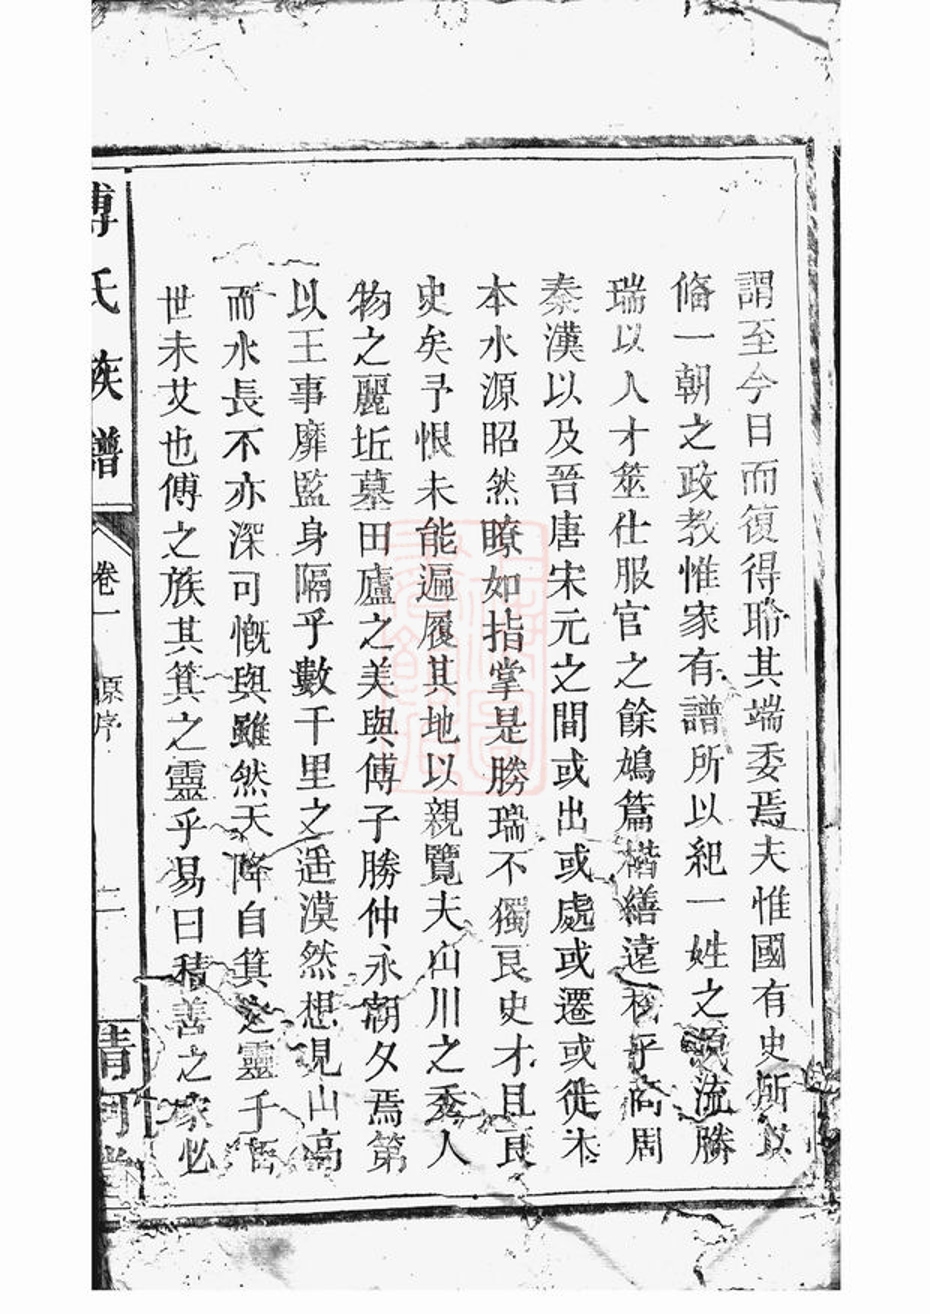 謂至今日而復得聆其端委焉夫惟國有史所以
偹一朝之政教惟家有譜所以紀一姓之源流勝
瑞以人才筮仕服官之餘鳩篇楷繕遠於乎商周
秦漢以及晉唐宋元之間或出或處或遷或徙木
本水源昭然瞭如指掌是勝瑞不獨良史才且良
史矣予恨未能遍履其地以親覽夫山川之秀人
物之麗坵墓田廬之美與傅子勝仲永朝夕焉第
以王事靡監身隔乎數千里之遥漠然想見山高
而水長不亦深可慨與雖然天降自箕之靈千
世未艾也傅之族其箕之靈乎易曰積善之家必
傅氏族譜
卷一
原序
二
清河堂